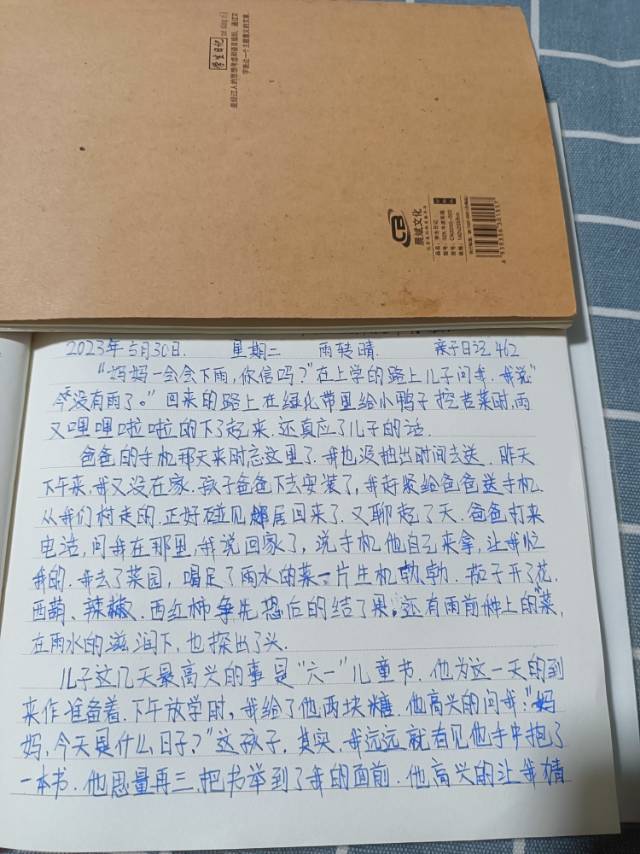 学生日记
晨斌文化
CB
2023年5月30日. 星期二 雨转晴. 亲子日记462
“妈妈一会会下雨,你信吗?”在上学的路上儿子问我.我说“
今天没有雨了。”回来的路上在绿化带里给小鸭子挖苦菜时,雨
又哩哩啦啦的下了起来.还真应了儿子的话.
爸爸的手机那天来时忘这里了.我也没抽出时间去送.昨天
下午来,我又没在家.孩子爸爸下去安装了,我赶紧给爸爸送手机.
从我们村走的.正好碰见邻居回来了.又聊起了天.爸爸打来
电话,问我在那里,我说回家了,说手机他自己来拿,让我忙
我的.我去了菜园,喝足了雨水的菜一片生机勃勃.茄子开了花,
西葫、辣椒.西红柿争先恐后的结了果.还有雨前种上的“菜,
在雨水的滋润下,也探出了头.
儿子这几天最高兴的事是“六一”儿童节.他为这一天的到
来作准备着.下午放学时,我给了他两块糖.他高兴的问我:“妈
妈,今天是什么日子?”这孩子.其实.我远远就看见他手中抱了
一本书.他思量再三.把书举到了我的面前.他高兴的让我猜